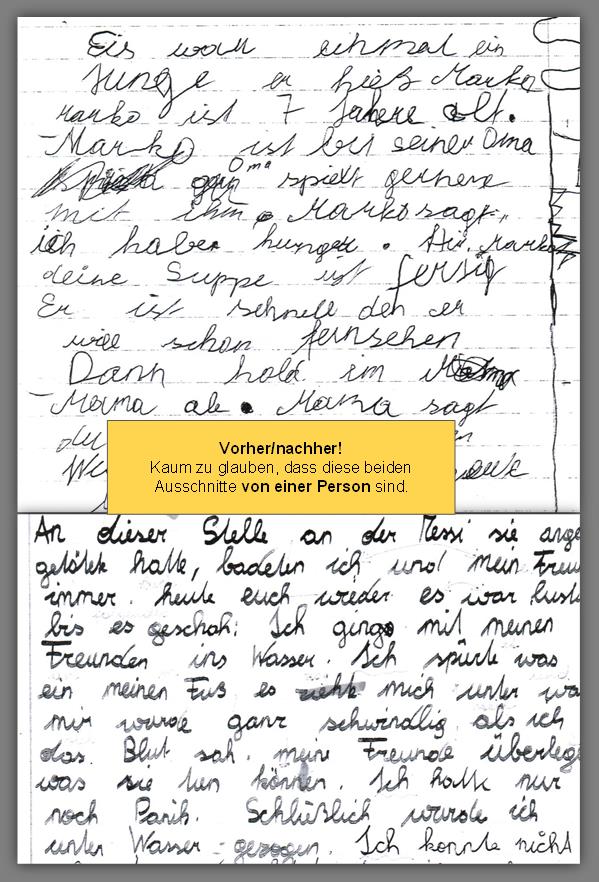 Eis war einmal ein
Junge er hieß Marko
marko ist 7 Jahere alt.
Marko ist bei seiner Oma
Oma spielt gerhne
mit ihm. Marko sagt,
ich habe hunger. Marko
deine Suppe ist fersig
Er ist schnell den er
will schon fernsehen
Dann hold im
Mama ab. Mama sagt
du
Vorher/nachher!
Kaum zu glauben, dass diese beiden
Ausschnitte von einer Person sind.
An dieser Stelle an der Nessi sie ange
getötet hatte, badeten ich und mein Freu
immer. heute euch wieder es war lust
bis es geschah: Ich ging mit meinen
Freunden ins Wasser. Ich spürte was
ein meinen Fuß es zieht mich unter wa
mir wurde ganz schwindlig als ich
das Blut sah. meine Freunde überleg
was sie tun können. Ich hatte nur
noch Panik. Schließlich wurde ich
unter Wasser gezogen. Ich konnte nicht